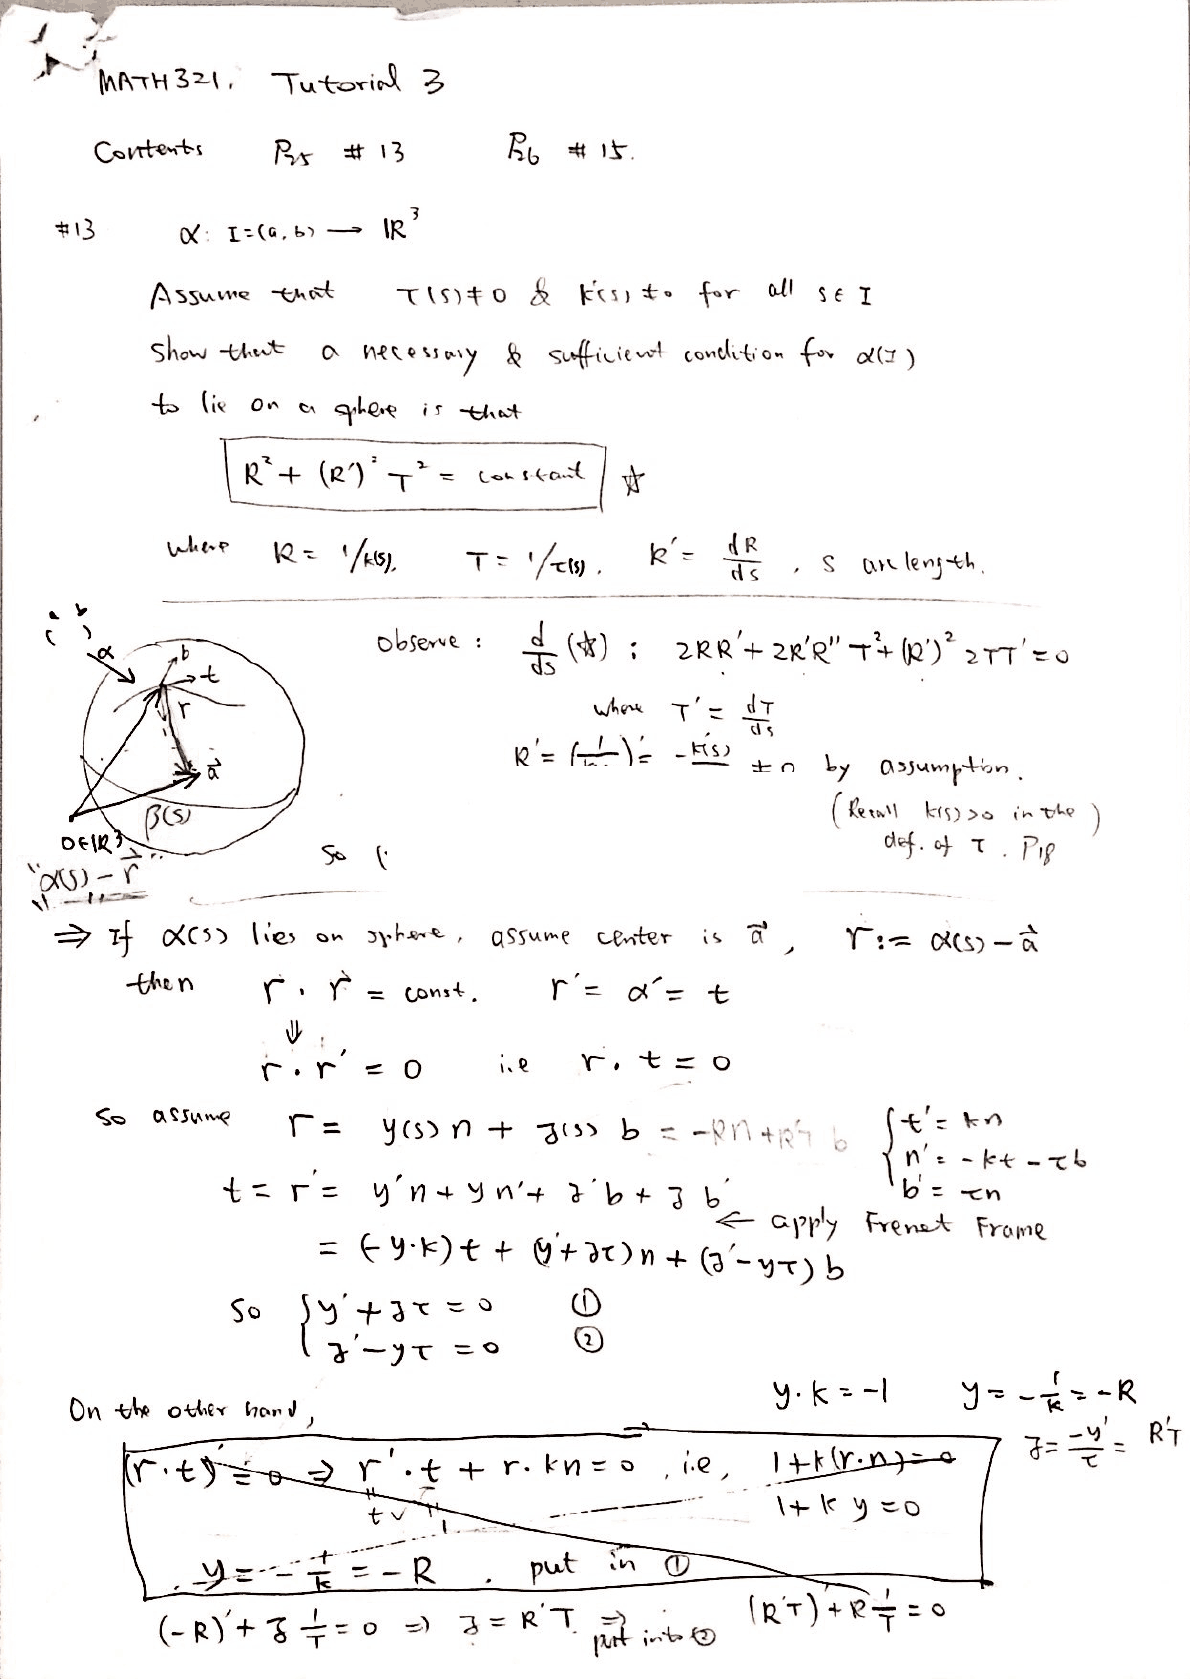 MATH 321, Tutorial 3
Contents P25 # 13 P26 # 15.
#13 α: I=(a,b) → ℝ³
Assume that τ(s)≠0 & k'(s)≠0 for all s∈I
Show that a necessary & sufficient condition for α(I)
to lie on a sphere is that
R² + (R')² T² = constant ☆
where R = 1/k(s), T = 1/τ(s), R' = dR/ds, s arc length.
Observe : d/ds (☆) : 2RR' + 2R'R"T² + (R')² 2TT' = 0
where T' = dT/ds
R' = ( )' = -k'(s) ≠0 by assumption.
(Recall k(s)>0 in the
def. of τ. P18)
So (
α b t r a⃗
β(s)
O∈ℝ³
"α(s) - r⃗"
⇒ If α(s) lies on sphere, assume center is a⃗, r := α(s) - a⃗
then r · r = const. r' = α' = t
⇓
r · r' = 0 i.e r. t = 0
So assume r = y(s) n + z(s) b = -Rn + R'T b { t' = kn
n' = -kt - τb
b' = τn
t = r' = y'n + yn' + z'b + z b'
← apply Frenet Frame
= (-y·k) t + (y' + zτ) n + (z' - yτ) b
So { y' + zτ = 0 ①
z' - yτ = 0 ②
y·k = -1 y = -1/k = -R
z = -y'/τ = R'T
On the other hand,
(r·t)' = 0 ⇒ r'·t + r·kn = 0, i.e, 1+k(r·n)=0
t 1 + k y = 0
y = -1/k = -R . put in ①
(-R)' + z 1/T = 0 ⇒ z = R'T ⇒ put into ② (R'T)' + R 1/T = 0